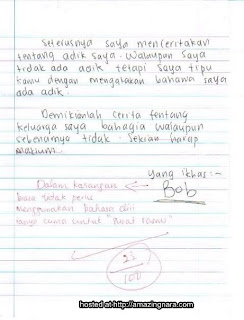 Seterusnya saya menceritakan
tentang adik saya. Walaupun saya
tidak ada adik tetapi saya tipu
kamu dengan mengatakan bahawa saya
ada adik.
Demikianlah cerita tentang
keluarga saya bahagia walaupun
sebenarnya tidak. Sekian harap
maklum.
Yang ikhlas:-
Bob
Dalam karangan
tidak perlu
menggunakan bahasa
cuma untuk "Surat rasmi"
23/100
hosted at http://amazingnara.com